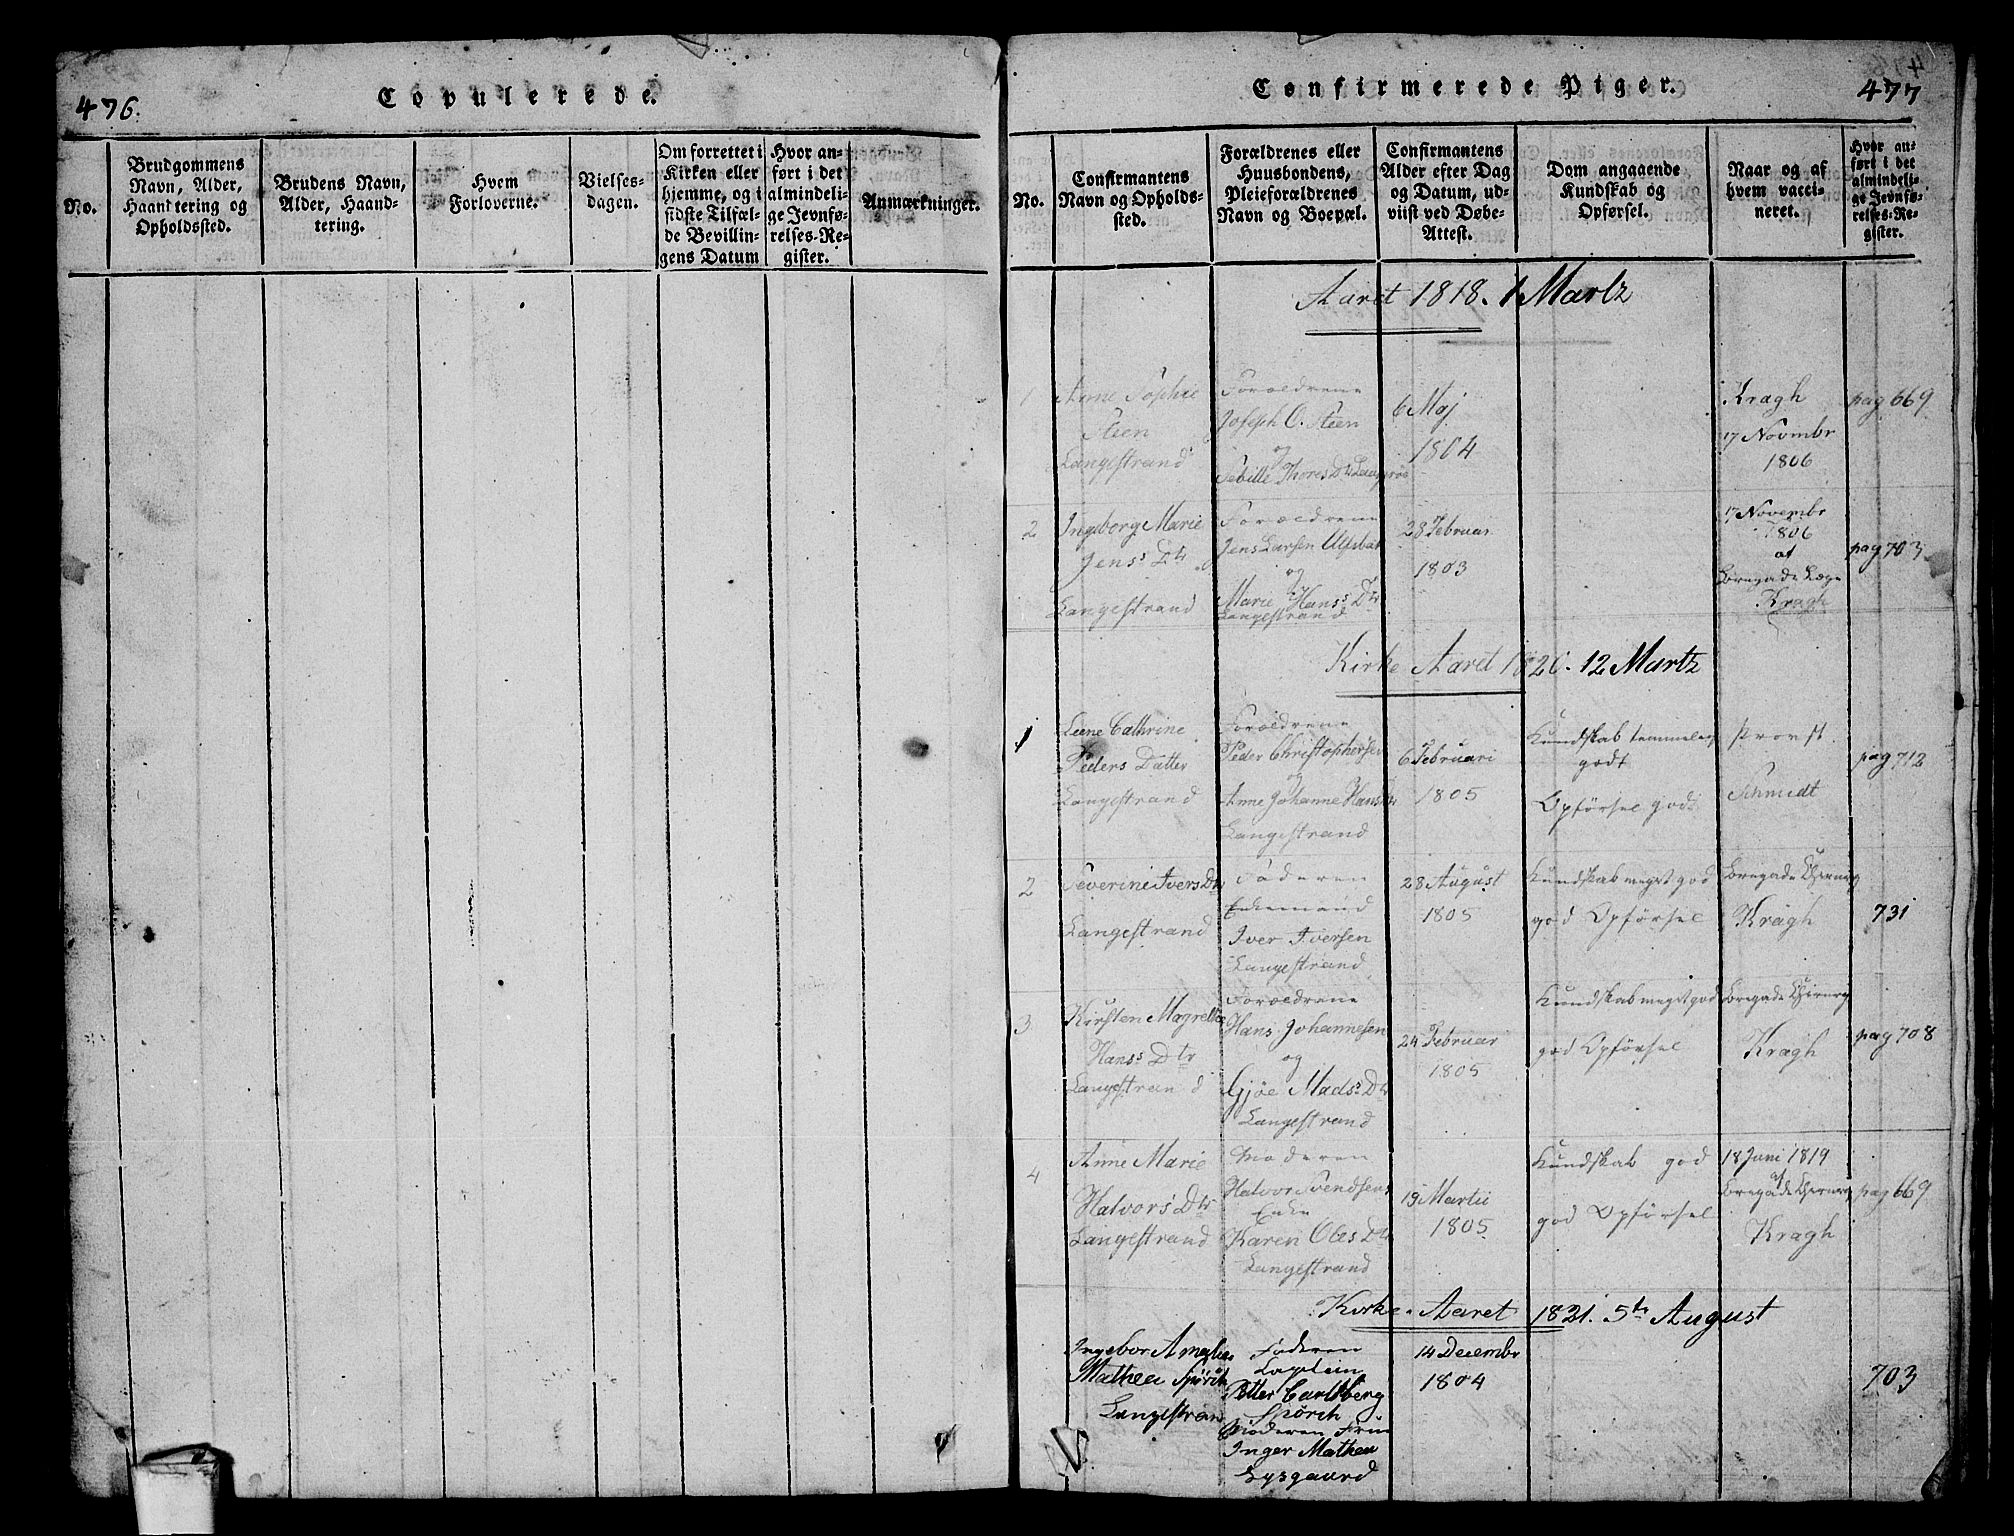 476.
Copulerede.
No.
Brudgommens
Navn, Alder,
Haandtering og
Opholdssted.
Brudens Navn,
Alder, Haand-
tering.
Hvem
Forloverne.
Vielses-
dagen.
Om forrettet i
Kirken eller
hjemme, og i
sidste Tilfæl-
de Bevillin-
gens Datum
Hvor an-
ført i det
almindeli-
ge Jevnfø-
relses-Re-
gister.
Anmærkninger.
Confirmerede Piger.
477
No.
Confirmantens
Navn og Opholds-
sted.
Forældrenes eller
Huusbondens,
Pleieforældrenes
Navn og Boepæl.
Confirmantens
Alder efter Dag
og Datum, ud-
viist ved Døbe-
Attest.
Dom angaaende
Kundskab og
Opførsel.
Naar og af
hvem vacci-
neret.
Hvor an-
ført i det
almindeli-
ge Jevnfø-
relses-Re-
gister.
Aaret 1818. 1 Martz
1
Anne Sophie
Steen
Langestrand
Forældrene
Joseph O. Steen
og
Sebille Thores Dtr
6 Maj
1804
Kragh
17 Novmbr
1806
pag 669
2
Ingeborg Marie
Jens Dtr
Langestrand
Forældrene
Jens Larsen
og
Marie Hans Dtr
Langestrand
28 Februar
1803
17 Novembr
1806
af
Bregade Læge
Kragh
pag 703
Kirke Aaret 1820. 12 Martz
1
Lene Cathrine
Peders Datter
Langestrand
Forældrene
Peder Christophersen
og
Anne Johanne Hans Dtr
Langestrand
6 Februari
1805
Kundskab temmelig
godt
Opførsel god
Provst
Schmidt
pag 712
2
Severine Ivers Dtr
Langestrand
Faderen
Enkemand
Iver Iversen
Langestrand
28 August
1805
Kundskab meget god
god Opførsel
Bregade Chirurg
Kragh
731
3
Kirsten Magrethe
Hans Dtr
Langestrand
Forældrene
Hans Johannesen
og
Gjøe Mads Dtr
Langestrand
24 Februar
1805
Kundskab meget god
god Opførsel
Bregade Chirurg
Kragh
pag 708
4
Anne Marie
Halvors Dtr
Langestrand
Moderen
Halvor Svendsens
Enke
Karen Oles Dtr
Langestrand
19 Martii
1805
Kundskab god
god Opførsel
18 Juni 1819
af
Bregade Chirurg
Kragh
pag 669
Kirke Aaret 1821. 5te August
Ingebor Amalia
Mathea Spørck
Langestrand
Faderen
Capitein
Petter Carlsberg
Spørck
Moderen Frue
Inger Mathea
Lysgaard
14 Decembr
1804
703